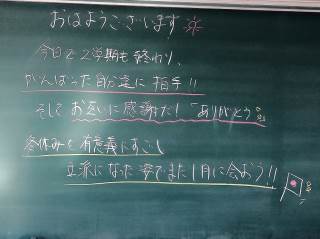 おはようございます
今日で2学期も終わり、
がんばった自分達に拍手!!
そして お互いに感謝だ!「ありがとう」
冬休みを有意義にすごし
立派になった姿でまた1月に会おう!!